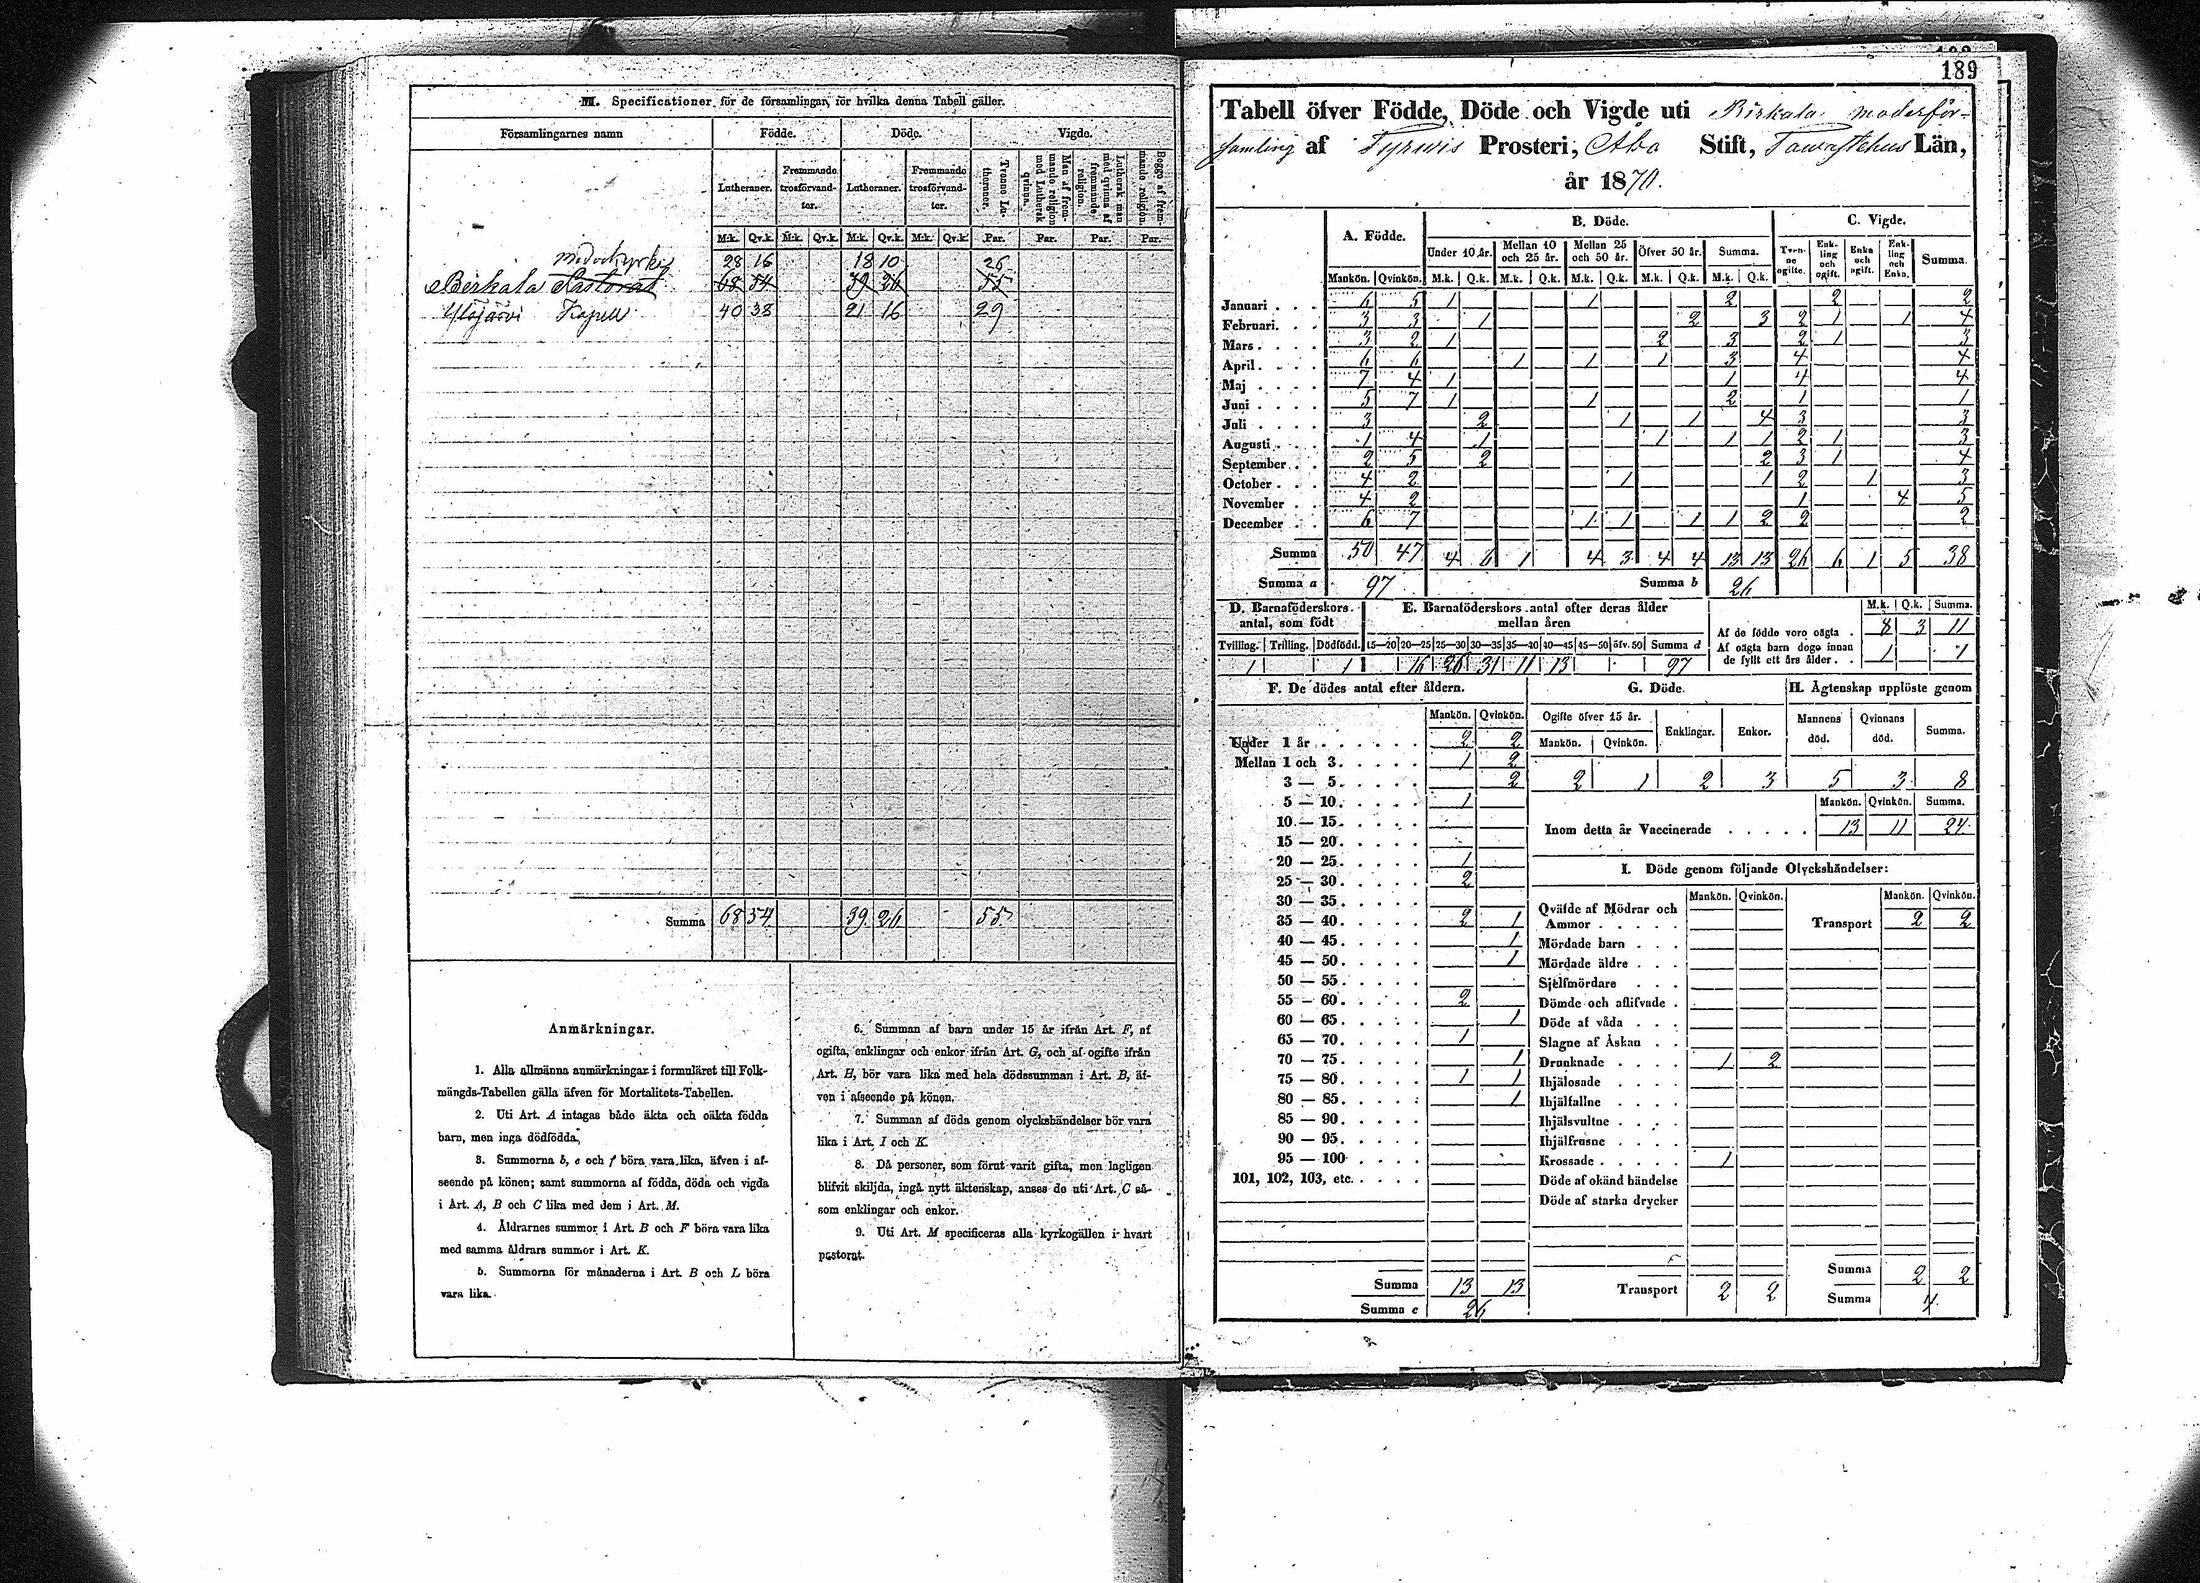 M. Specificationer för de församlingar, för hvilka denna Tabell gäller.
Församlingarnes namn Födde. Döde. Vigde.
Lutheraner. Fremmande trosförvandter. Lutheraner. Fremmande trosförvandter. Tvenne Lutheraner. Man af fremmande religion med Luthersk qvinna. Luthersk man med qvinna af fremmande religion. Begge af fremmande religion.
M.k. Qv.k. M.k. Qv.k. M.k. Qv.k. M.k. Qv.k. Par. Par. Par. Par.
moderkyrka 28 16 18 10 26
Birkala Pastorat 68 54 39 26 55
Ylöjärvi Kapell 40 38 21 16 29
Summa 68 54 39 26 55
Anmärkningar.
1. Alla allmänna anmärkningar i formuläret till Folk-
mängds-Tabellen gälla äfven för Mortalitets-Tabellen.
2. Uti Art. A intagas både äkta och oäkta födda
barn, men inga dödfödda.
3. Summorna b, e och f böra vara lika, äfven i af-
seende på könen; samt summorna af födda, döda och vigda
i Art. A, B och C lika med dem i Art. M.
4. Åldrarnes summor i Art. B och F böra vara lika
med samma åldrars summor i Art. K.
5. Summorna för månaderna i Art. B och L böra
vara lika.
6. Summan af barn under 15 år ifrån Art. F, af
ogifta, enklingar och enkor ifrån Art. G, och af ogifte ifrån
Art. H, bör vara lika med hela dödssumman i Art. B, äf-
ven i afseende på könen.
7. Summan af döda genom olyckshändelser bör vara
lika i Art. I och K.
8. Då personer, som förut varit gifta, men lagligen
blifvit skiljda, ingå nytt äktenskap, anses de uti Art. C så-
som enklingar och enkor.
9. Uti Art. M specificeras alla kyrkogällen i hvart
pastorat.
189
Tabell öfver Födde, Döde och Vigde uti Birkala moderför-
samling af Tyrvis Prosteri, Åbo Stift, Tawastehus Län,
år 1870.
A. Födde. B. Döde. C. Vigde.
Under 10 år. Mellan 10 och 25 år. Mellan 25 och 50 år. Öfver 50 år. Summa. Tvenne ogifte. Enkling och ogift. Enka och ogift. Enkling och Enka. Summa.
Mankön. Qvinkön. M.k. Q.k. M.k. Q.k. M.k. Q.k. M.k. Q.k. M.k. Q.k.
Januari 6 5 1 1 2 2 2
Februari 3 3 1 2 3 2 1 1 4
Mars 3 2 1 2 3 2 1 3
April 6 6 1 1 1 3 4 4
Maj 7 4 1 1 4 4
Juni 5 7 1 1 2 1 1
Juli 3 2 1 1 4 3 3
Augusti 1 4 1 1 1 1 2 1 3
September 2 5 2 2 3 1 4
October 4 2 1 1 2 1 3
November 4 2 1 4 5
December 6 7 1 1 1 1 2 2 2
Summa 50 47 4 6 1 4 3 4 4 13 13 26 6 1 5 38
Summa a 97 Summa b 26
D. Barnaföderskors antal, som födt
Tvilling. Trilling. Dödfödd.
1 1
E. Barnaföderskors antal efter deras ålder mellan åren
15—20 20—25 25—30 30—35 35—40 40—45 45—50 öfv. 50 Summa d
16 26 31 11 13 97
M.k. Q.k. Summa.
Af de födde voro oägta 8 3 11
Af oägta barn dogo innan de fyllt ett års ålder 1 1
F. De dödes antal efter åldern.
Mankön. Qvinkön.
Under 1 år 2 2
Mellan 1 och 3 1 2
3 — 5 2
5 — 10 1
10 — 15
15 — 20
20 — 25 1
25 — 30 2
30 — 35
35 — 40 2 1
40 — 45 1
45 — 50 1
50 — 55
55 — 60 2
60 — 65 1
65 — 70 1
70 — 75 1
75 — 80 1 1
80 — 85 1
85 — 90
90 — 95
95 — 100
101, 102, 103, etc.
Summa 13 13
Summa e 26
G. Döde.
Ogifte öfver 15 år. Enklingar. Enkor.
Mankön. Qvinkön.
2 1 2 3
H. Ägtenskap upplöste genom
Mannens död. Qvinnans död. Summa.
5 3 8
Mankön. Qvinkön. Summa.
Inom detta år Vaccinerade 13 11 24
I. Döde genom följande Olyckshändelser:
Mankön. Qvinkön. Mankön. Qvinkön.
Qväfde af Mödrar och Ammor Transport 2 2
Mördade barn
Mördade äldre
Sjelfmördare
Dömde och aflifvade
Döde af våda
Slagne af Åskan
Drunknade 1 2
Ihjälosade
Ihjälfallne
Ihjälsvultne
Ihjälfrusne
Krossade 1
Döde af okänd händelse
Döde af starka drycker
Summa 2 2
Transport 2 2 Summa 4